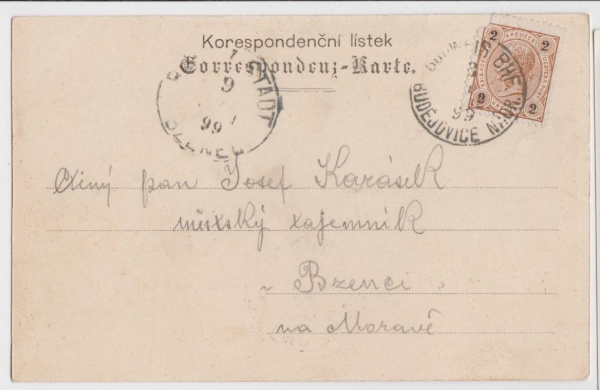 Korespondenční lístek
Correspondenz-Karte.
1
9
99
STADT
BZENEC
15
99
BUDĚJOVICE NÁDR.
KREUZER
2 2
2 2
Ctěný pan Josef Karásek
městský tajemník
v Bzenci
na Moravě